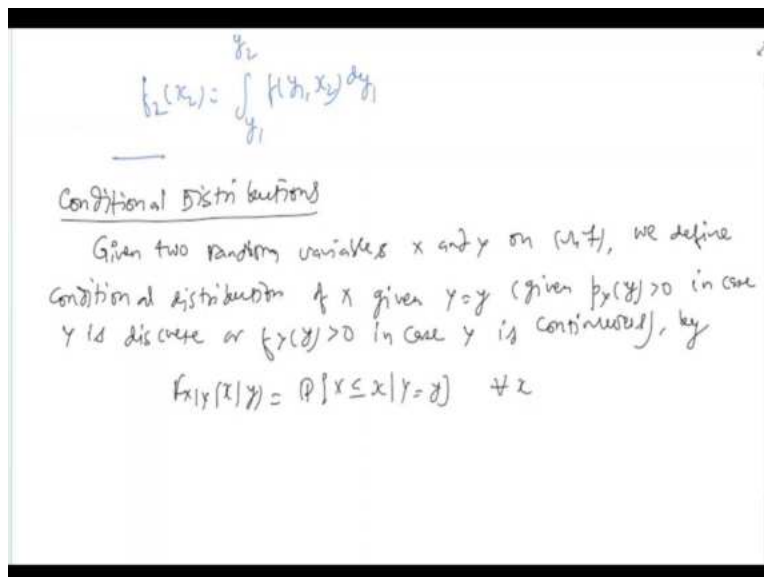 f₂(x₂) = ∫_{y₁}^{y₂} f(y₁, x₂) dy₁
Conditional Distributions
Given two random variables X and Y on (Ω, F), we define
conditional distribution of X given Y=y (given p_Y(y)>0 in case
Y is discrete or f_Y(y)>0 in case Y is continuous), by
F_{X|Y}(x|y) = P{X ≤ x | Y=y} ∀ x